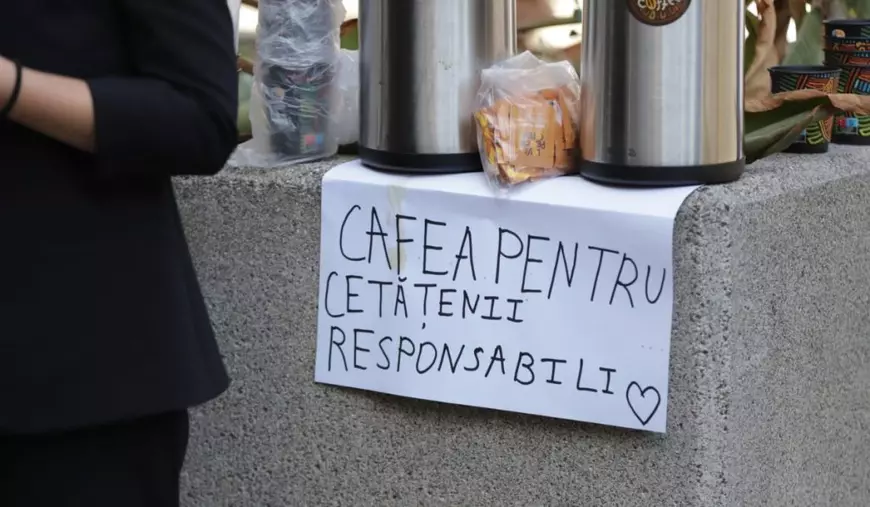 CAFEA PENTRU
CETĂȚENII
RESPONSABILI